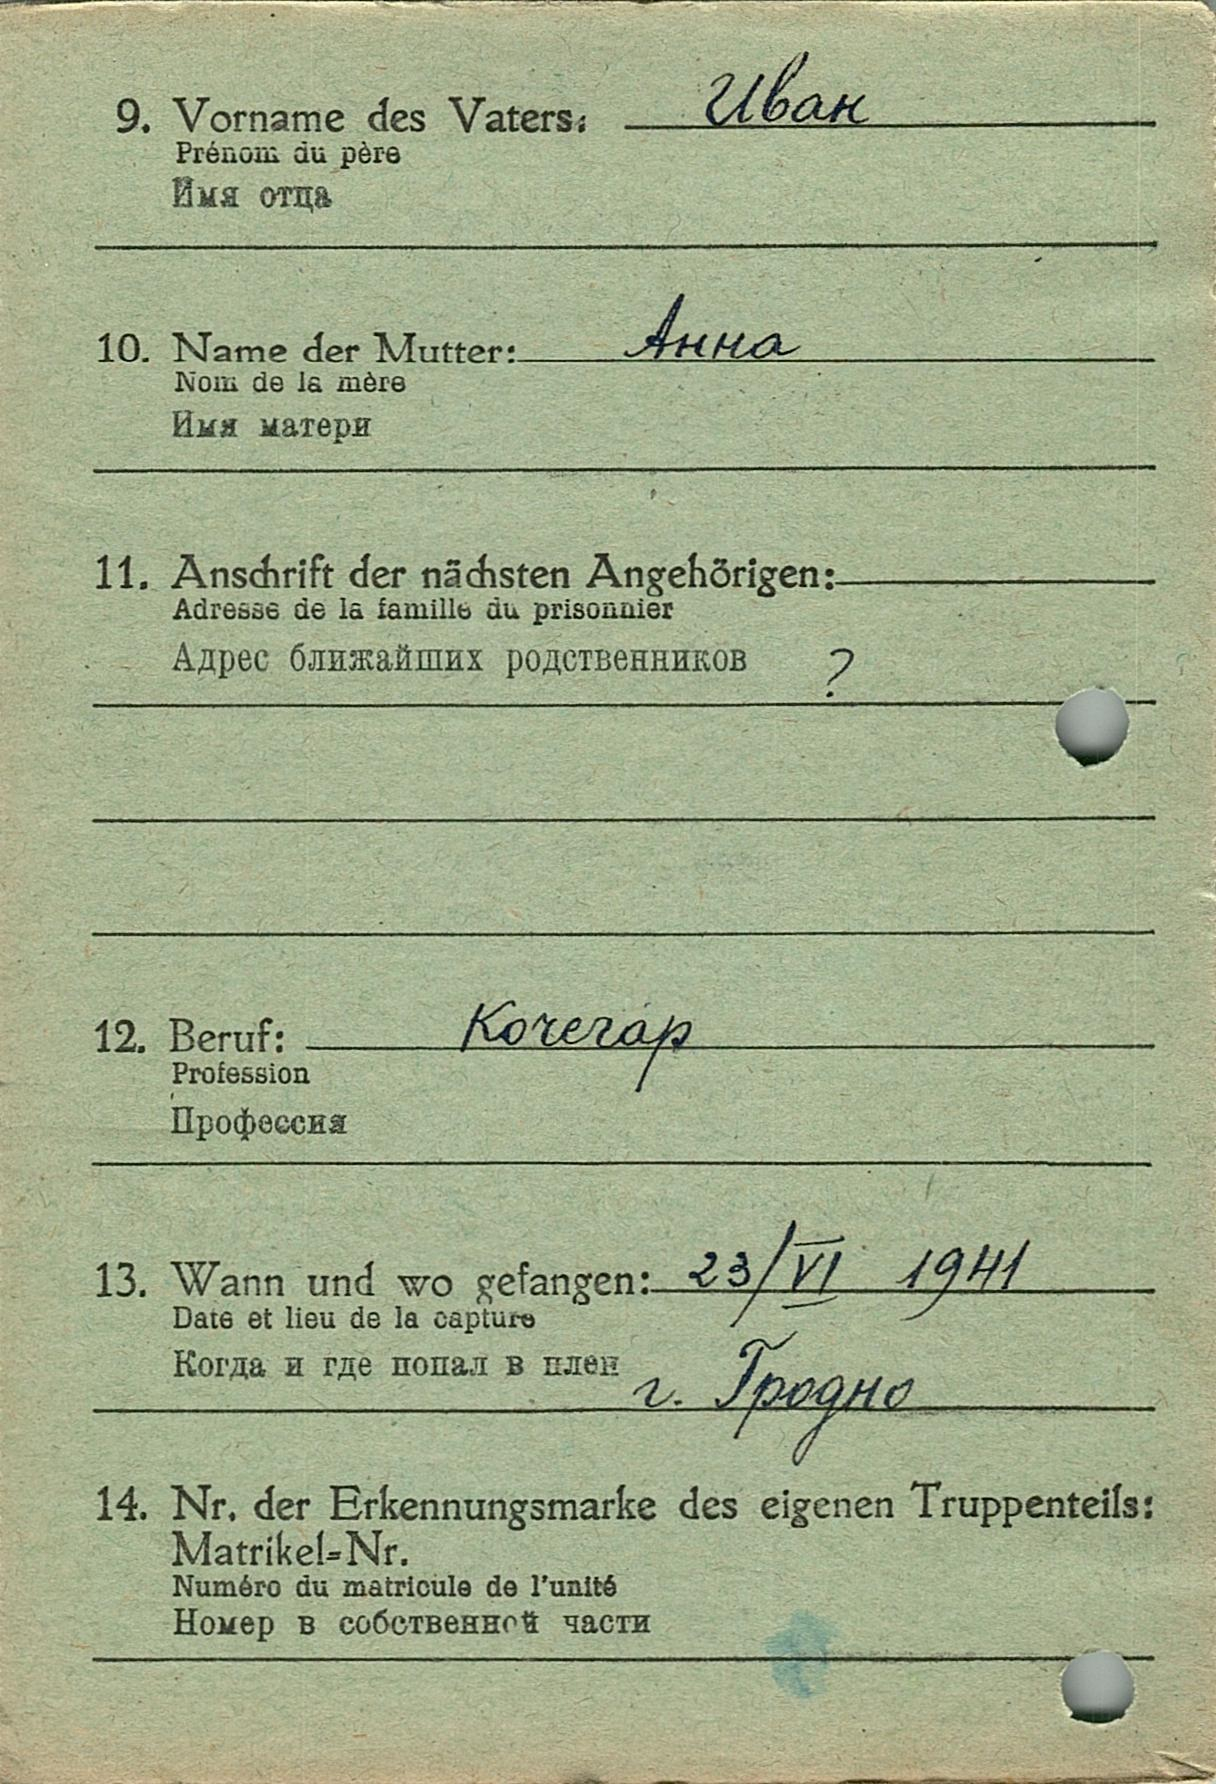 9. Vorname des Vaters: Иван
Prénom du père
Имя отца
10. Name der Mutter: Анна
Nom de la mère
Имя матери
11. Anschrift der nächsten Angehörigen:
Adresse de la famille du prisonnier
Адрес ближайших родственников ?
12. Beruf: Кочегар
Profession
Профессия
13. Wann und wo gefangen: 23/VI 1941
Date et lieu de la capture
Когда и где попал в плен г. Гродно
14. Nr. der Erkennungsmarke des eigenen Truppenteils:
Matrikel=Nr.
Numéro du matricule de l'unité
Номер в собственной части